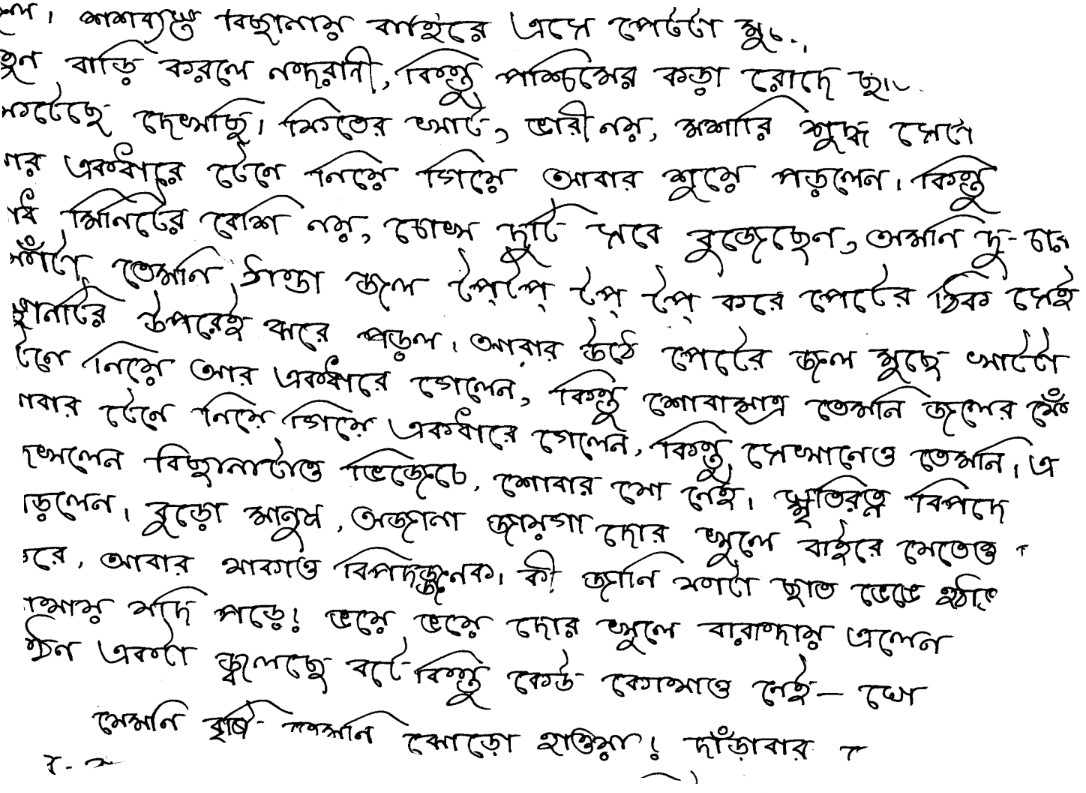 শশব্যস্তে বিছানার বাইরে এসে পেটটা
বাড়ি করলে নন্দরানী, কিন্তু পশ্চিমের কড়া রোদে
দেখছি। ফিতের খাট, ভারী নয়, মশারি শুদ্ধ সেটা
একধারে টেনে নিয়ে গিয়ে আবার শুয়ে পড়লেন। কিন্তু
মিনিটের বেশি নয়, চোখ দুটি সবে বুজেছেন, অমনি দু-চার
তেমনি ঠাণ্ডা জল টপ্ টপ্ টপ্ টপ্ করে পেটের ঠিক সেই
উপরেই ঝরে পড়ল। আবার উঠে পেটের জল মুছে খাটটা
টেনে নিয়ে আর একধারে গেলেন, কিন্তু শোবামাত্র তেমনি জলের
টেনে নিয়ে গিয়ে একধারে গেলেন, কিন্তু সেখানেও তেমনি। এ
বিছানাটাও ভিজেচে, শোবার যো নেই। স্মৃতিরত্ন বিপদে
বুড়ো মানুষ, অজানা জায়গা দোর খুলে বাইরে যেতেও
আবার থাকাও বিপদজ্জনক। কী জানি ফাটা ছাত ভেঙে হঠাৎ
যদি পড়ে! ভয়ে ভয়ে দোর খুলে বারান্দায় এলেন
একটা জ্বলছে বটে কিন্তু কেউ কোথাও নেই—
যেমনি বৃষ্টি তেমনি ঝোড়ো হাওয়া! দাঁড়াবার